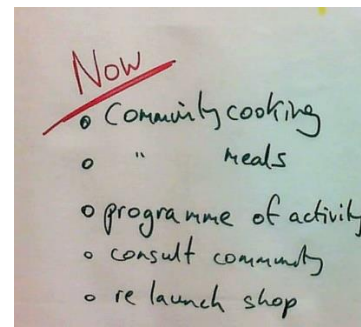 Now
o Community cooking
o " meals
o programme of activity
o consult community
o re launch shop